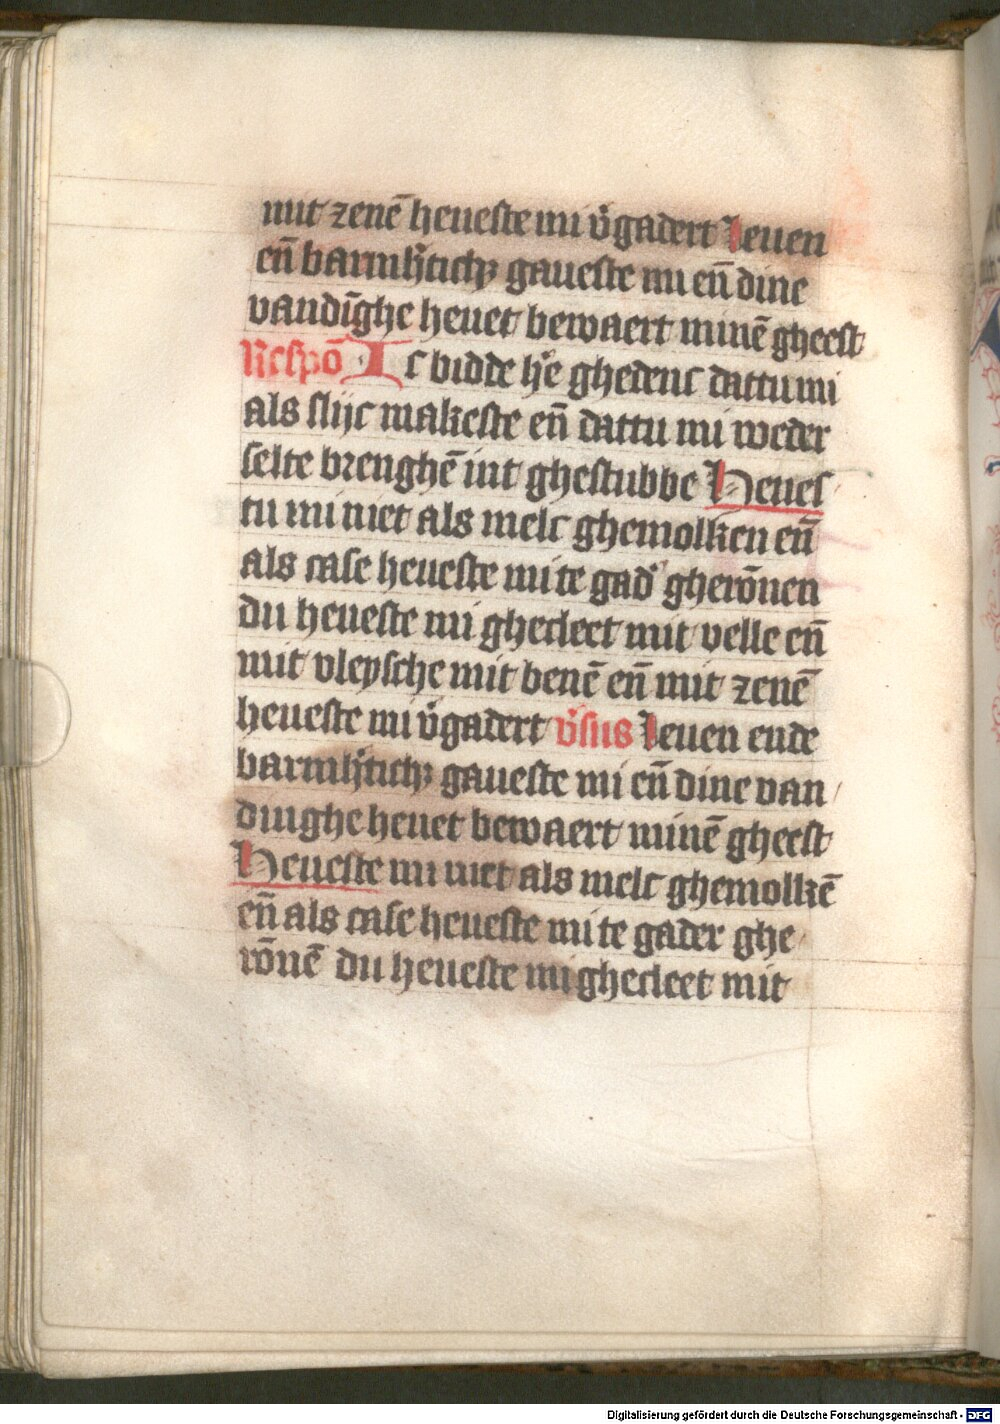 mit zenē heueste mi v̉gadert Leuen
en̄ barmh̉ticħ gaueste mi en̄ dine
vandīghe heuet bewaert minē gheest
Respō Ic bidde hē ghedenc dattu mi
als slijc makeste en̄ dattu mi weder
selte brenghē int ghestubbe Heues
tu mi niet als melc ghemolken en̄
als case heueste mi te gad̉ gherōnen
du heueste mi ghecleet mit velle en̄
mit vleysche mit benē en̄ mit zenē
heueste mi v̉gadert v̉sus Leuen ende
barmh̉ticħ gaueste mi en̄ dine van
dinghe heuet bewaert minē gheest
Heueste mi niet als melc ghemolkē
en̄ als case heueste mi te gader ghe
rōnē du heueste mi ghecleet mit
Digitalisierung gefördert durch die Deutsche Forschungsgemeinschaft - DFG